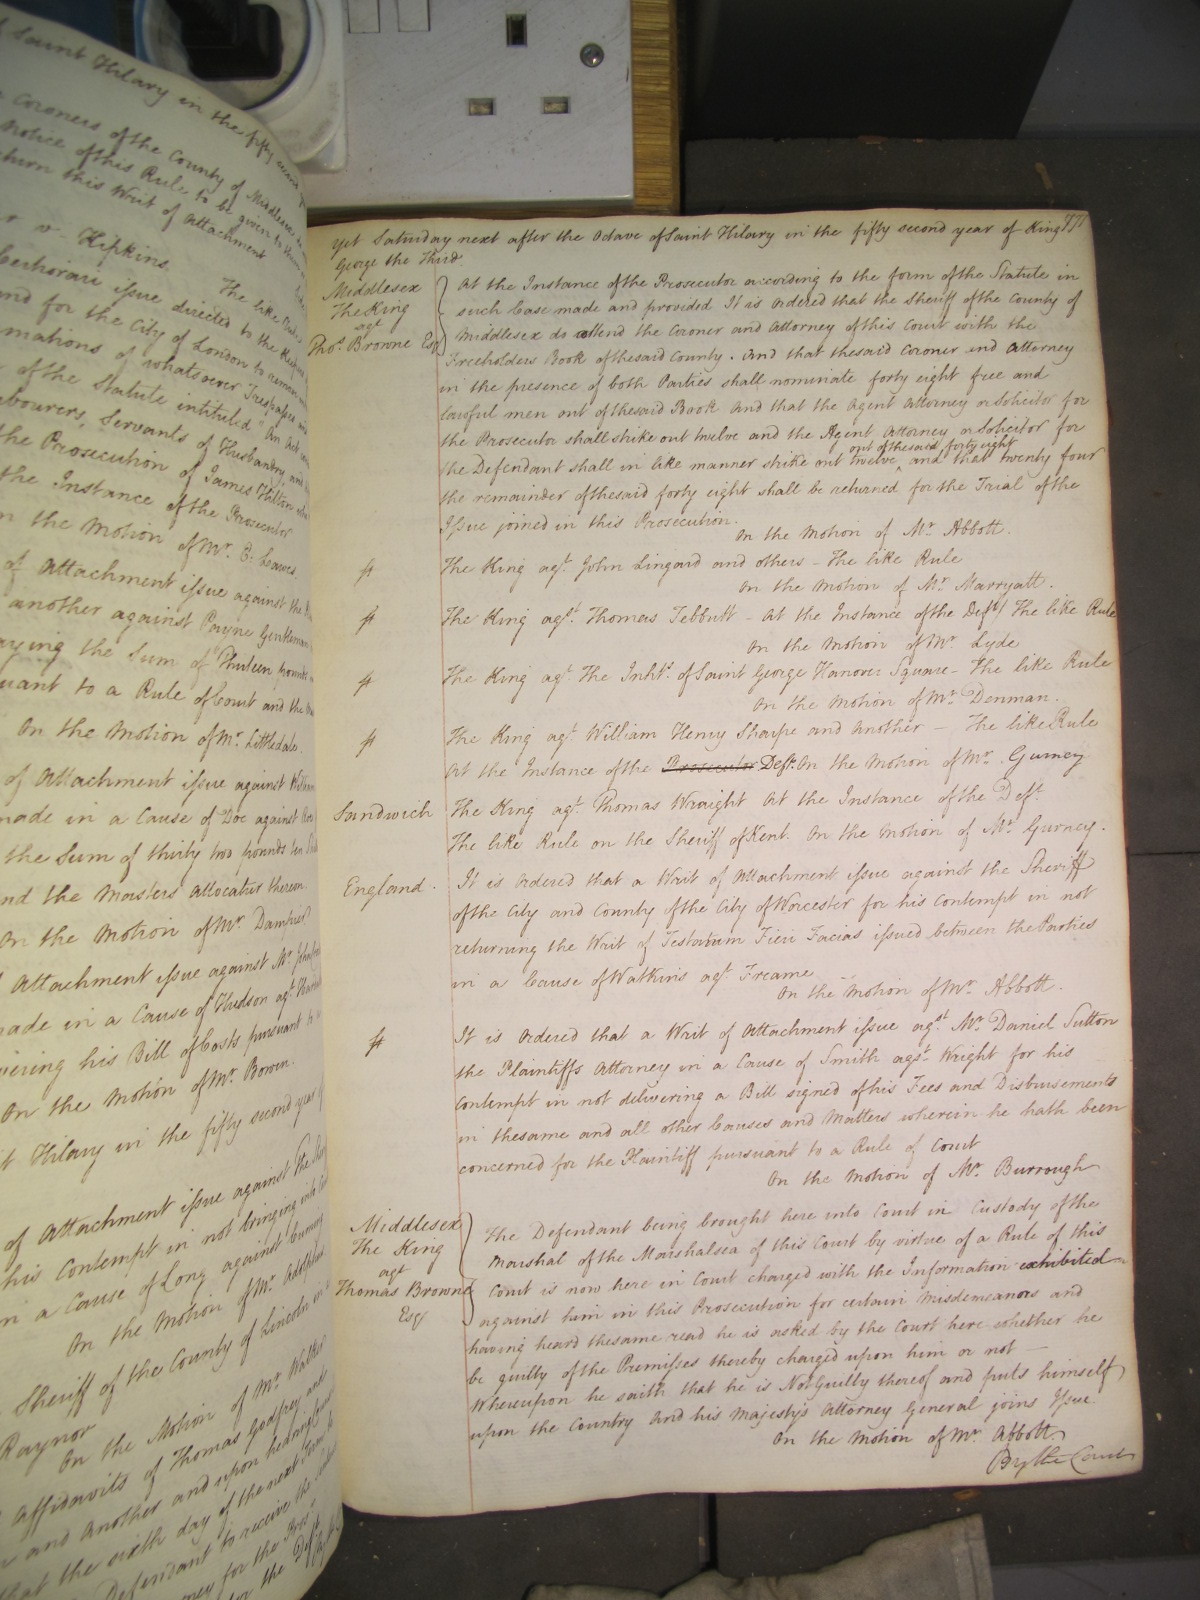 Saint Hilary in the fifty second
Coroners of the County of Middlesex
Notice of this Rule to be given to
return this Writ of Attachment
v. Hipkins
The like
Certiorari issue directed to the
and for the City of London to remove
of whatsoever Trespasses and
of the Statute intituled "An Act
Servants of Husbandry, and
the Prosecution of James Hilton
the Instance of the Prosecutor
On the Motion of Mr. E. Lawes.
of Attachment issue against the
another against Payne Gentleman
paying the Sum of Thirteen pounds
pursuant to a Rule of Court and the
On the Motion of Mr. Littledale.
of Attachment issue against
made in a Cause of Doe against
the Sum of thirty two pounds ten
and the Masters allocatur thereon.
On the Motion of Mr. Dampier
Attachment issue against Mr.
made in a Cause of Hudson agt.
delivering his Bill of Costs pursuant to
On the Motion of Mr. Bowen.
Hilary in the fifty second year
of Attachment issue against the
his Contempt in not bringing into
in a Cause of Long against
On the Motion of Mr. Adolphus.
Sheriff of the County of Lincoln
Raynor
On the Motion of Mr. Walter
Affidavits of Thomas Godfrey and
and Another and upon hearing
that the sixth day of the next Term
Defendant to receive the
for the
Yet Saturday next after the Octave of Saint Hilary in the fifty second year of King
George the Third
Middlesex
The King
agt
Thos. Browne Esq
At the Instance of the Prosecutor according to the form of the Statute in
such Case made and provided It is Ordered that the Sheriff of the County of
Middlesex do attend the Coroner and Attorney of this Court with the
Freeholders Book of thesaid County. And that thesaid Coroner and Attorney
in the presence of both Parties shall nominate forty eight free and
Lawful men out of thesaid Book And that the Agent Attorney or Solicitor for
the Prosecutor shall strike out twelve and the Agent Attorney or Solicitor for
out of thesaid forty eight
the Defendant shall in like manner strike out twelve ‸ and that twenty four
the remainder of thesaid forty eight shall be returned for the Trial of the
Issue joined in this Prosecution.
On the Motion of Mr. Abbott.
The King agt. John Lingard and others - The like Rule
On the Motion of Mr. Marryatt.
The King agst. Thomas Tebbutt - At the Instance of the Deft./ The like Rule
On the Motion of Mr. Lyde
The King agt. The Inhts. of Saint George Hanover Square - The like Rule
On the Motion of Mr. Denman.
The King agt. William Henry Sharpe and Another - The like Rule
At the Instance of the Prosecutor Deft. On the Motion of Mr. Gurney
Sandwich
The King agt. Thomas Wraight At the Instance of the Deft.
The like Rule on the Sheriff of Kent. On the Motion of Mr. Gurney.
England.
It is Ordered that a Writ of Attachment issue against the Sheriff
of the City and County of the City of Worcester for his Contempt in not
returning the Writ of Testatum Fieri Facias issued between the Parties
in a Cause of Watkins agt. Freame
On the Motion of Mr. Abbott.
It is Ordered that a Writ of Attachment issue agst. Mr. Daniel Sutton
the Plaintiffs Attorney in a Cause of Smith agst. Wright for his
Contempt in not delivering a Bill signed of his Fees and Disbursements
in thesame and all other Causes and Matters wherein he hath been
concerned for the Plaintiff pursuant to a Rule of Court
On the Motion of Mr. Burrough
Middlesex
The King
agt
Thomas Browne
Esq
The Defendant being brought here into Court in Custody of the
Marshal of the Marshalsea of this Court by virtue of a Rule of this
Court is now here in Court charged with the Information exhibited
against him in this Prosecution for certain Misdemeanors and
having heard thesame read he is asked by the Court here whether he
be guilty of the Premisses thereby charged upon him or not -
Whereupon he saith that he is Not Guilty thereof and puts himself
upon the Country And his Majesty's Attorney General joins Issue.
On the Motion of Mr. Abbott.
By the Court